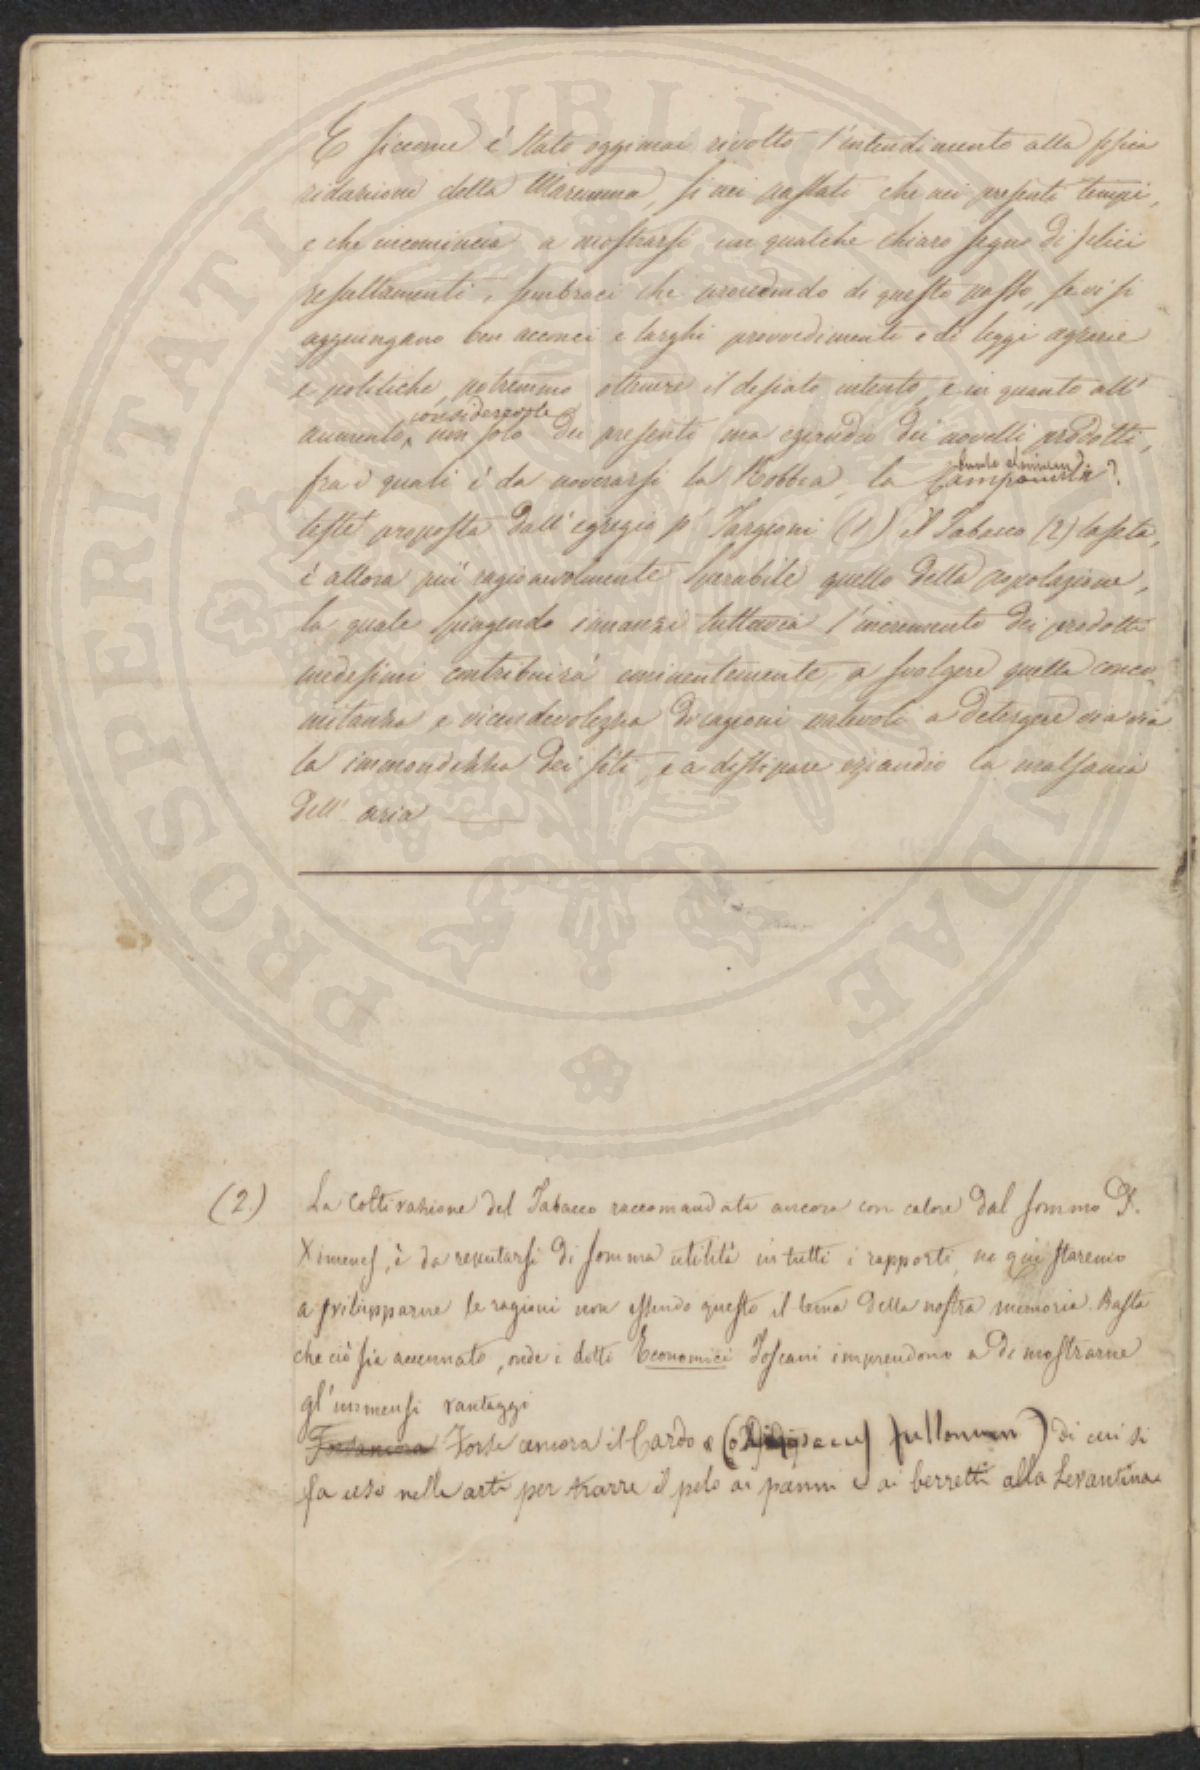 E siccome è stato oggimai rivolto l'intendimento alla fisica
riduzione della Maremma, sì nei passati che nei presenti tempi,
e che incomincia a mostrarsi un qualche chiaro segno di felici
resultamenti, sembraci che procedendo di questo passo, se vi si
aggiungano ben acconci e larghi provvedimenti e di leggi agrarie
e politiche, potremmo ottenere il desiato intento, e in quanto all'
considerevole
aumento, non solo dei presenti ma eziandio dei novelli prodotti,
fra i quali è da noverarsi la Robbia, la
testé proposta dall'egregio Targioni (1) il Tabacco (2) la seta,
è allora più ragionevolmente sperabile quello della popolazione,
la quale spingendo innanzi tuttavia l'incremento dei prodotti
medesimi contribuirà eminentemente a svolgere quella conco
mitanza e vicendevolezza di cagioni valevoli a detergere via via
la immondezza dei siti, e a dissipare eziandio la malsania
dell'aria
(2.) La coltivazione del Tabacco raccomandata ancora con calore dal sommo P.
Ximenes, è da reputarsi di somma utilità in tutti i rapporti, ne qui staremo
a svilupparne le ragioni non essendo questo il tema della nostra memoria. Basta
che ciò sia accennato, onde i dotti Economici Toscani imprendono a dimostrarne
gl'immensi vantaggi
Forse ancora il Cardo fullonum) di cui si
fa uso nelle arti per trarre il pelo ai panni e ai berretti alla Levantina
PROSPERITATI PUBLICAE AUGENDAE